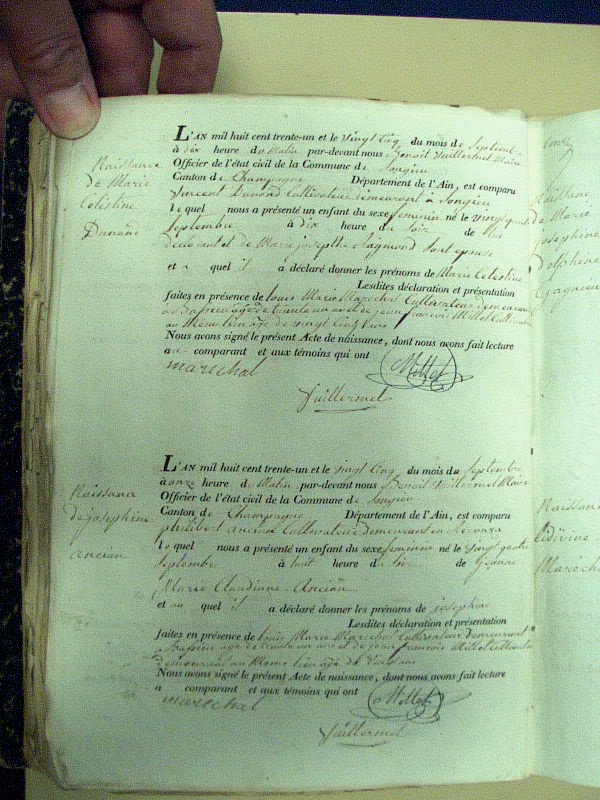 L'AN mil huit cent trente-un et le vingt cinq du mois de Septembre
à dix heure du Matin par-devant nous Benoit Vuillermet Maire
Officier de l'état civil de la Commune de Songieu
Canton de Champagne Département de l'Ain, est comparu
Vincent Dunand Cultivateur demeurant à Songieu
lequel nous a présenté un enfant du sexe feminin né le vingt quatre
Septembre à dix heure du soir de lui
declarant et de Marie josepthe Raymond Sont epouse
et a quel il a déclaré donner les prénoms de Marie Celestine
Lesdites déclaration et présentation
faites en présence de louis Marie Marechal Cultivateur demeurant
agé de trente un an et de jean françois Millet Cultivateur
au Meme lieu age de vingt cinq
Nous avons signé le présent Acte de naissance, dont nous avons fait lecture
au comparant et aux témoins qui ont
marechal Millet
Vuillermet
Naissance
de Marie
Celestine
Dunand
L'AN mil huit cent trente-un et le vingt cinq du mois de Septembre
à onze heure du Matin par-devant nous Benoit Vuillermet Maire
Officier de l'état civil de la Commune de Songieu
Canton de Champagne Département de l'Ain, est comparu
philibert ancian Cultivateur demeurant
lequel nous a présenté un enfant du sexe feminin né le vingt quatre
Septembre à huit heure du soir de
Marie Claudine Ancian
et au quel il a déclaré donner les prénoms de josephine
Lesdites déclaration et présentation
faites en présence de louis Marie Marechal Cultivateur demeurant
age de trente un an et de jean françois Millet Cultivateur
demeurant au Meme lieu age de
Nous avons signé le présent Acte de naissance, dont nous avons fait lecture
a comparant et aux témoins qui ont
marechal Millet
Vuillermet
Naissance
de josephine
ancian
Naissane
de Marie
josephine
Delphine
Naissance
Marécha